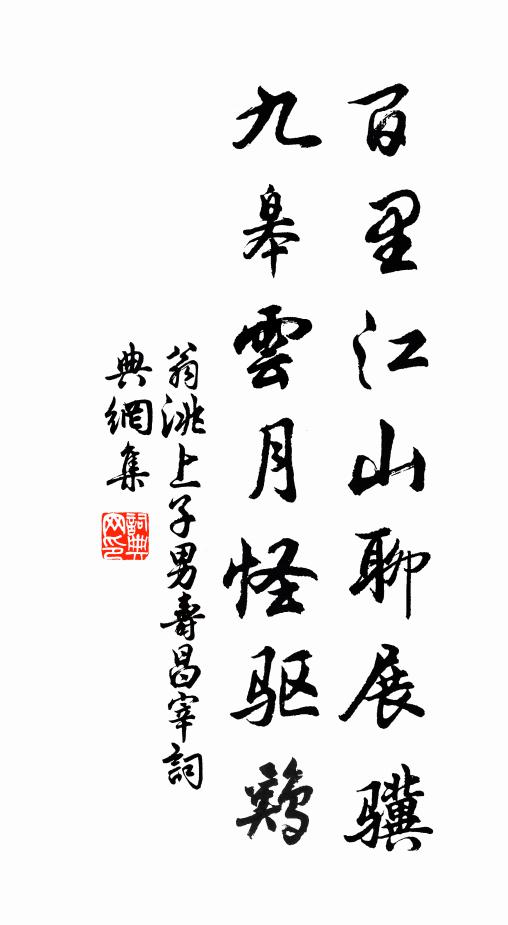 百里江山聊展骥
九皋雲月怪驱鷄
翁洮上子男壽昌宰詞
典網集
詞典网印